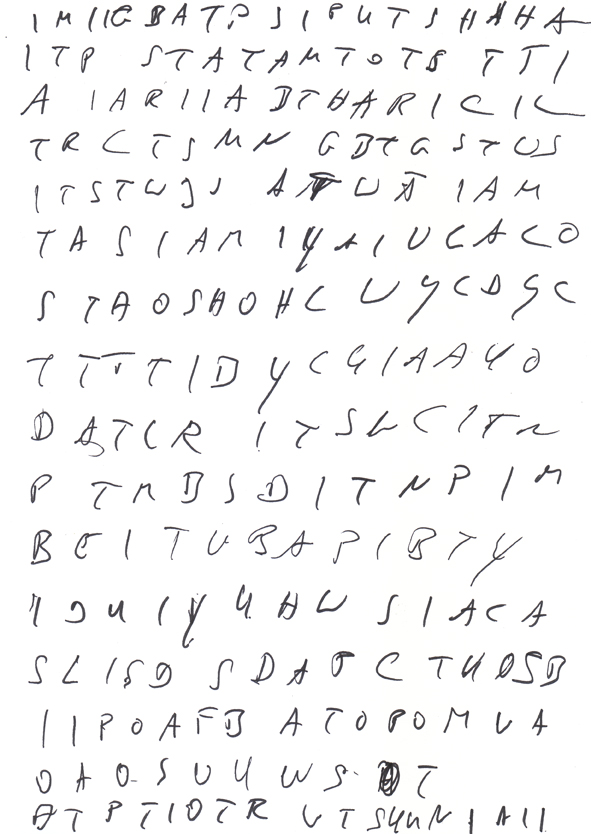 I M I I G B A T P S I P U T S H A H A
I T P S T A T A M T O T S T T I
A I A R I I A D T H A R I C I L
T R C T S M N G B T G S T U S
I T S T W J J A T U A I A M
T A S I A M I Y A I U C A C O
S T A O S A O H C U Y C D G C
T T T T I D Y C G I A A Y O
D A T C R I T S L C I T N
P T M B S D I T N P I M
B E I T U B A P I B T Y
I D U I Y U H W S I A C A
S L I S O S D A T C T U O S B
I I P O A F B A T O P O M U A
O A O S U U W S T
A T P T I O T R U T S U U N I A I I